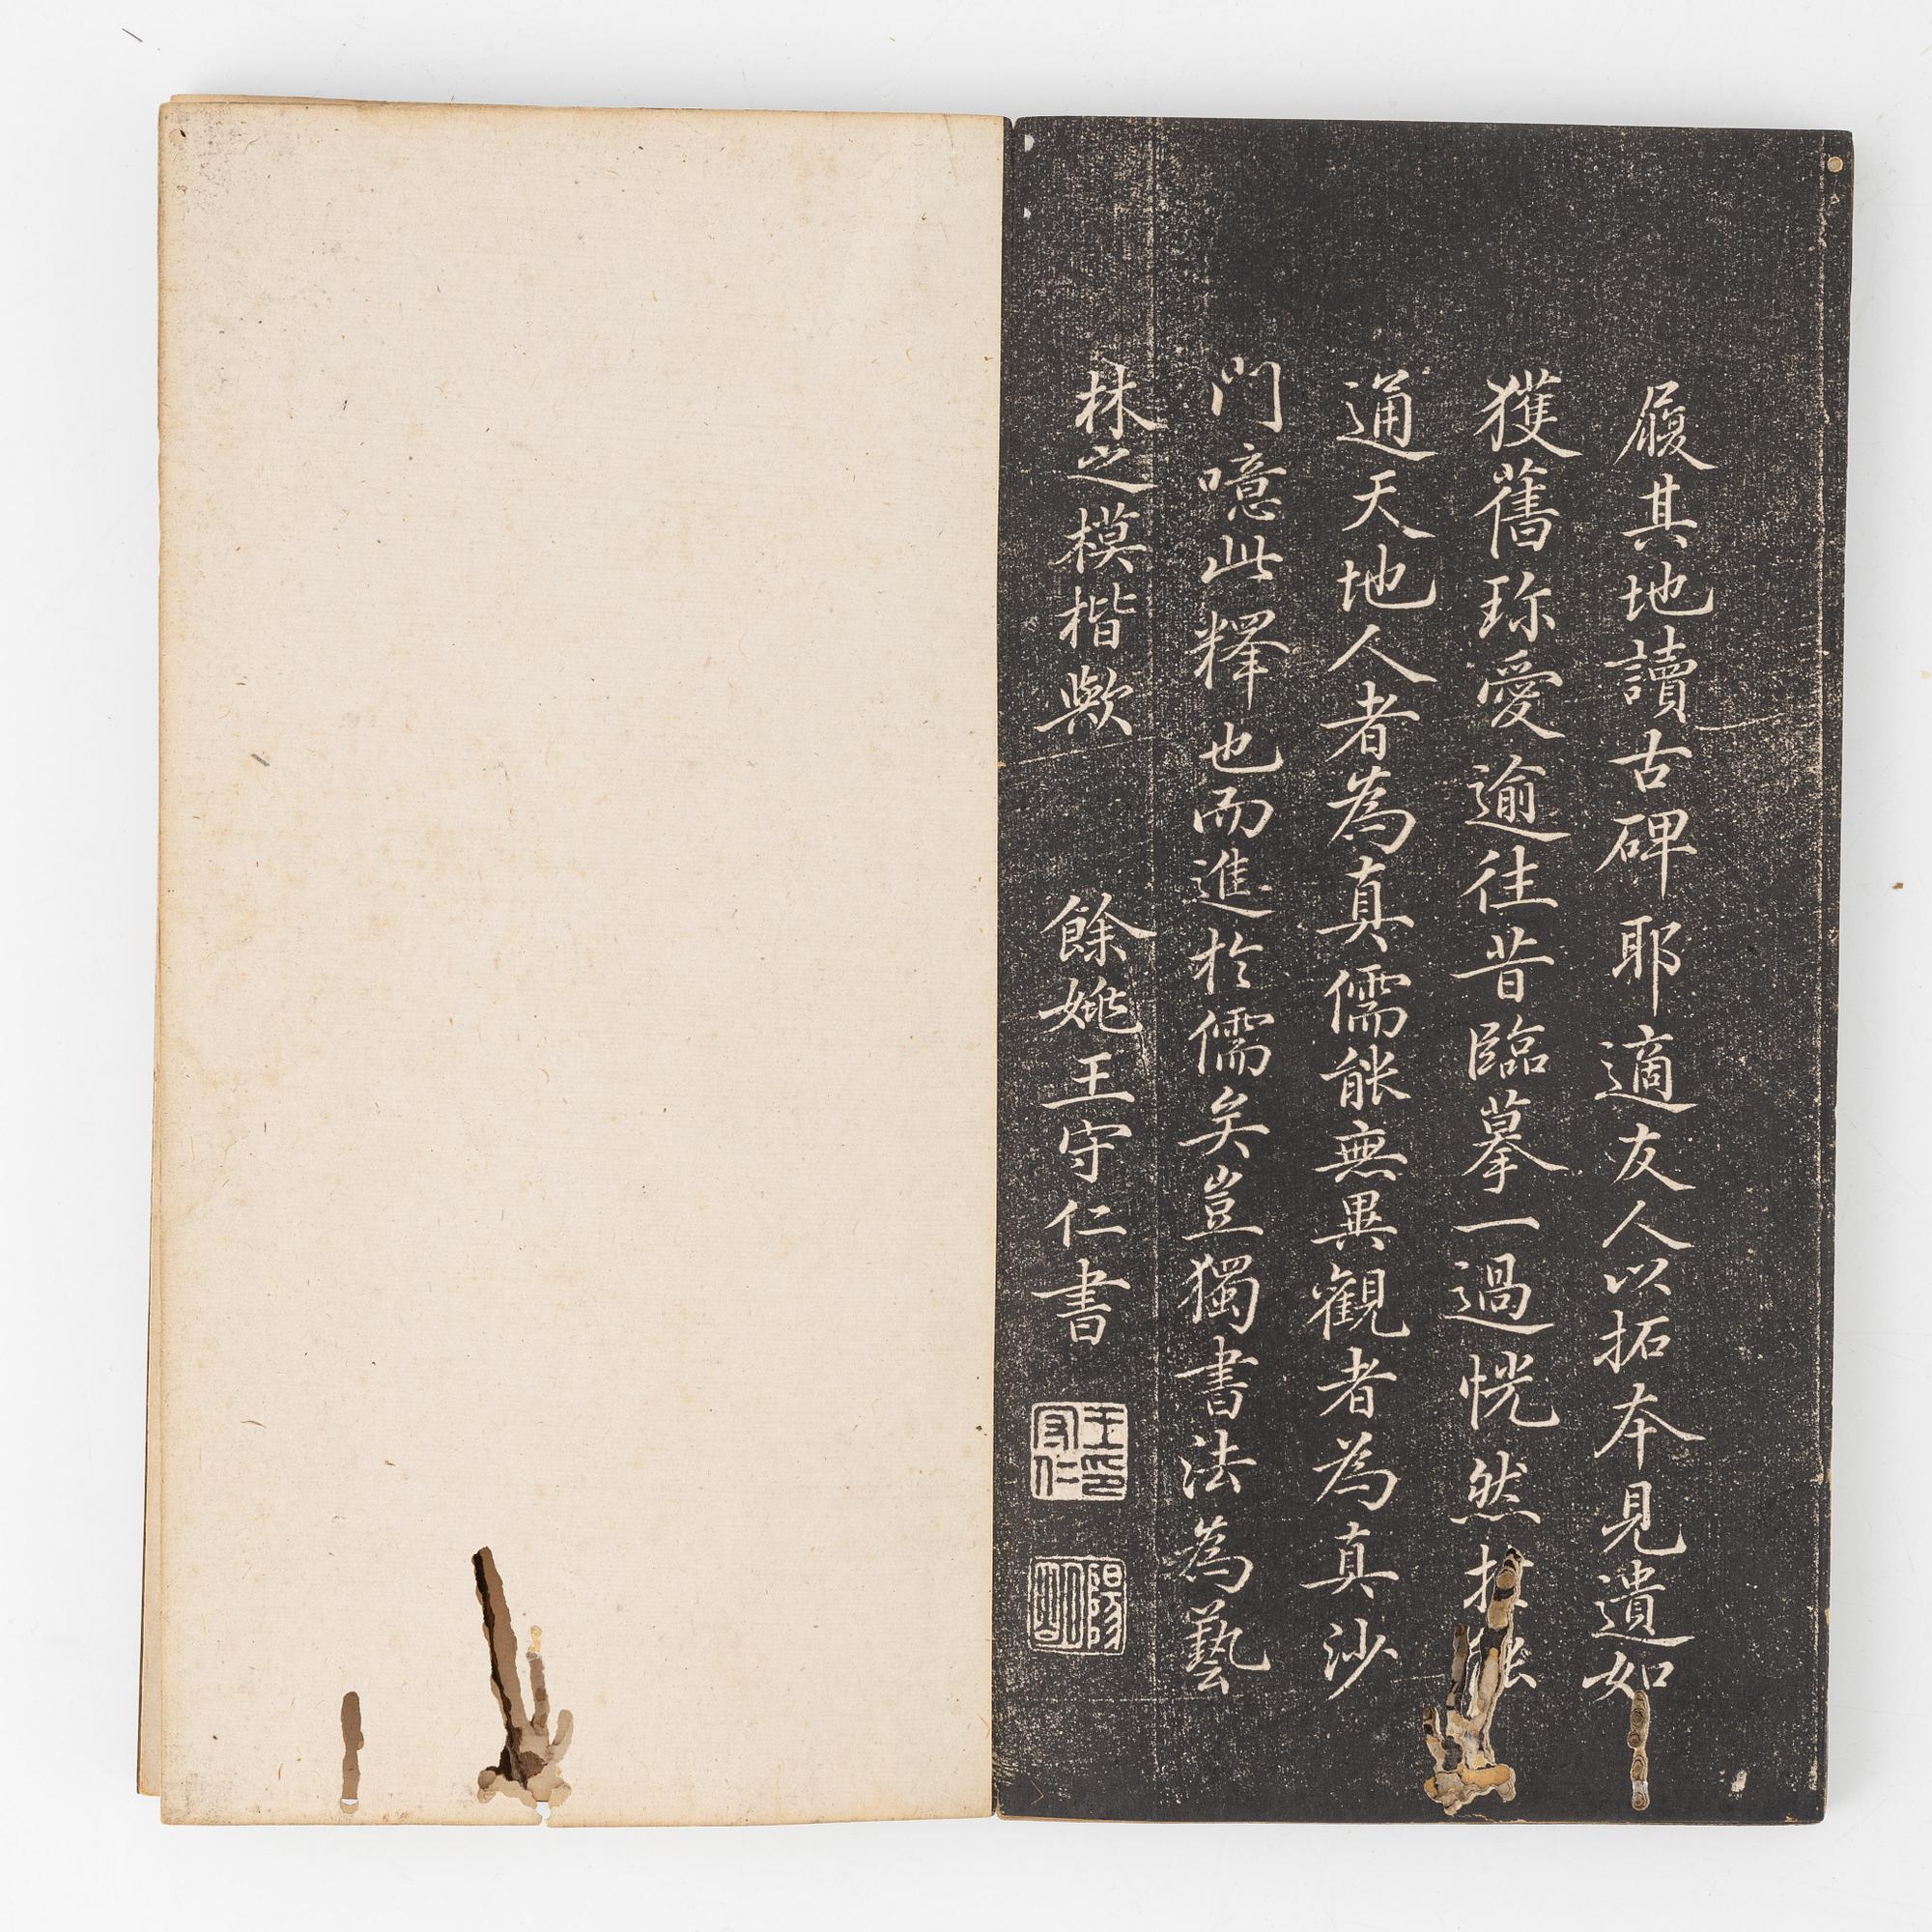 履其地讀古碑耶適友人以拓本見遺如
獲舊珎愛逾往昔臨摹一過恍然
通天地人者為真儒能無異觀者為真沙
門噫此釋也而進於儒矣豈獨書法為藝
林之模楷歟 餘姚王守仁書
王守仁印
陽明